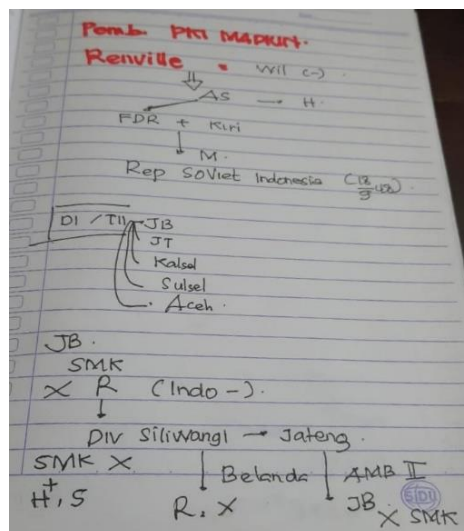 Pemb. PKI MADIUN.
Renville • Wil (-).
AS → H.
FDR + Kiri
M.
Rep Soviet Indonesia (18/9 48).
DI / TII JB
JT
Kalsel
Sulsel
Aceh.
JB.
SMK
X R (Indo -).
DIV Siliwangi → Jateng.
SMK X Belanda AMB II
H+, S R. X JB
X SMK
SIDU